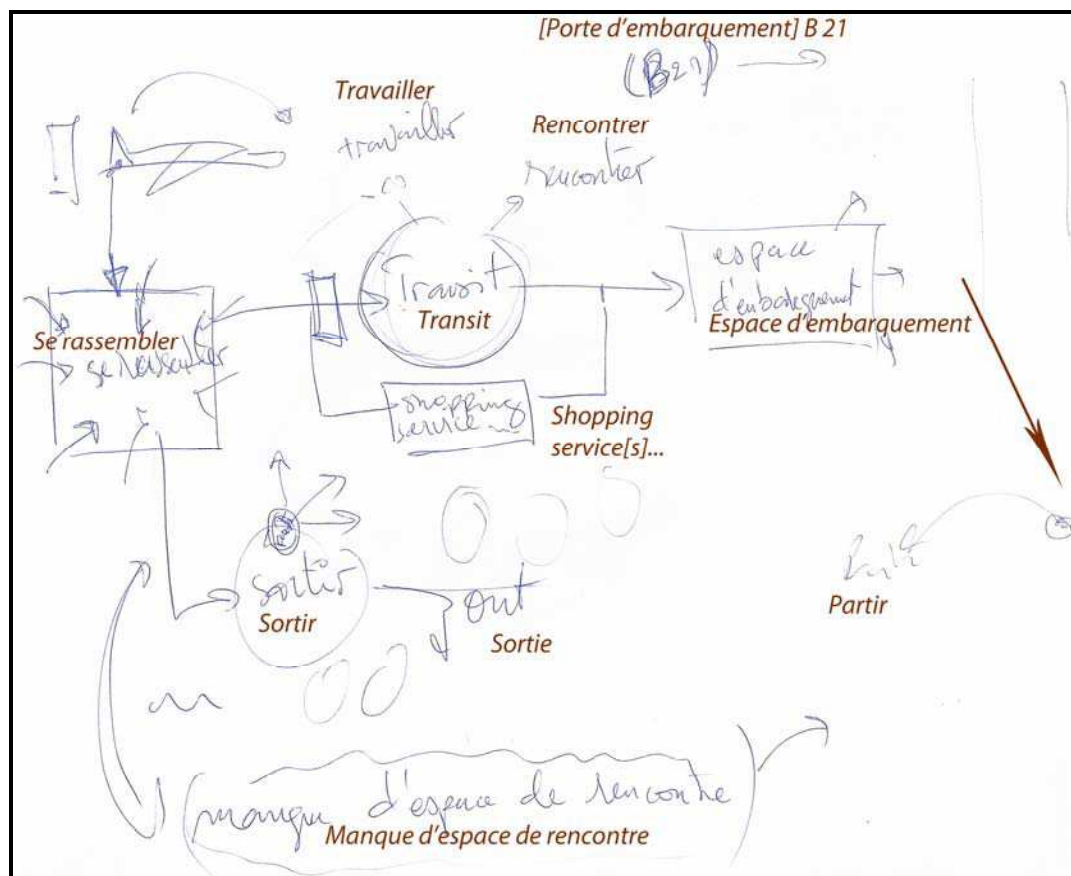 [Porte d'embarquement] B 21
(B21)
Travailler
travailler
Rencontrer
rencontrer
Transit
Transit
espace
d'embarquement
Espace d'embarquement
Se rassembler
se rassembler
shopping
service...
Shopping
service[s]...
sortir
Sortir
out
Sortie
Partir
manque d'espace de rencontre
Manque d'espace de rencontre